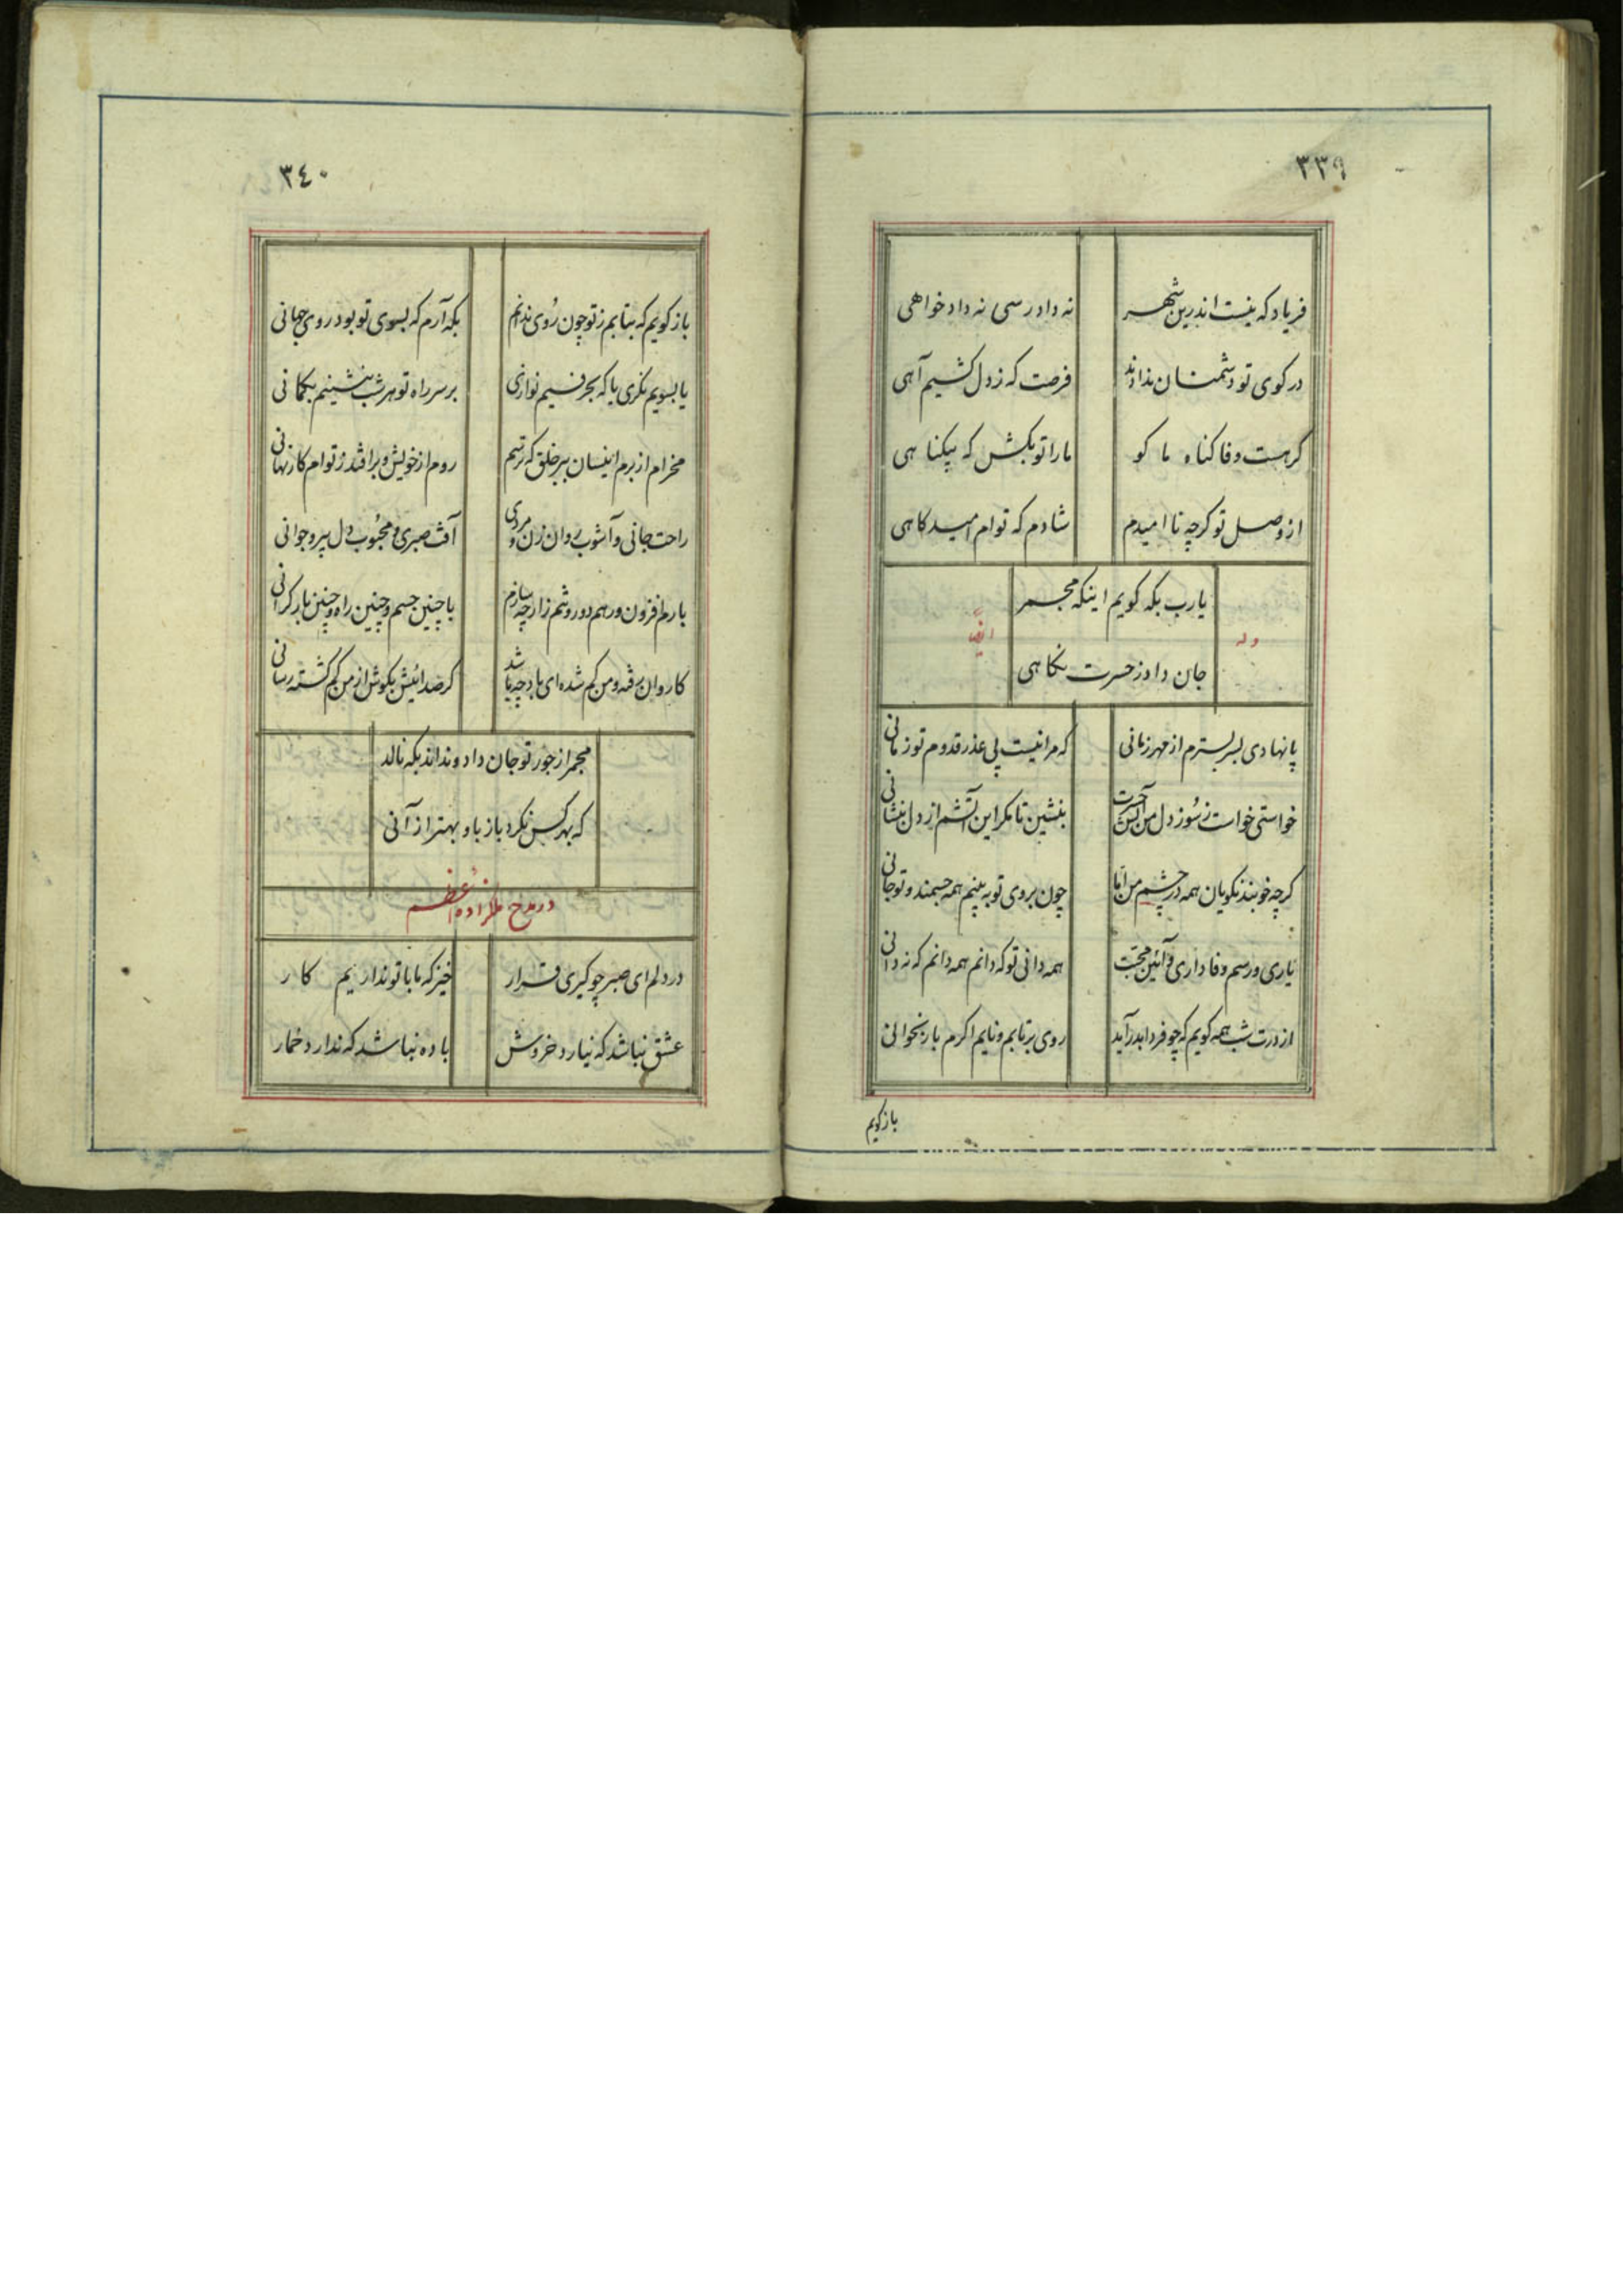 ٣٣٩
فریاد که نیست اندرین شهر نه دادرسی نه دادخواهی
در کوی تو دشمنان ندادند فرصت که ز دل کشیم آهی
کر هست وفا کناه ما کو ما را تو بکش که بیکناهی
از وصل تو کرچه ناامیدم شادم که توام امیدکاهی
یارب بکه کویم اینکه مجمر
وله ایضاً
جان داد ز حسرت نکاهی
پا نهادی بسر بسترم از مهر زمانی که مرا نیست پی عذر قدوم تو زمانی
خواستی خواست ز سوز دل من آتش حسرت بنشین تا مکر این آتشم از دل بنشانی
کرچه خوبند نکویان همه در چشم من اما چون بروی تو به بینم همه جسمند و تو جانی
یاری و رسم وفاداری و آئین محبت همه دانی تو که دانم همه دانم که ندانی
از درت شب همه کویم که چو فردا بدر آید روی برتابم و نایم اکرم باز بخوانی
بازکویم
٣٤٠
باز کویم که بتابم ز تو چون روی ندانم بکه آرم که بسوی تو بود روی جهانی
یا بسویم نکری یا که بحرفیم نوازی بر سر راه تو هر شب بنشینم بکمانی
مخرام از برم اینسان ببر خلق که ترسم روم از خویش و برافتد ز توام کار نهانی
راحت جانی و آشوب روان زن و مردی آفت صبری و محبوب دل پیر و جوانی
بارم افزون و رهم دور و تنم زار چه سازم با چنین جسم و چنین راه و چنین بار کرانی
کاروان رفته و من کم شده ای باد چه باشد کر صدائیش بکوش از من کم کشته رسانی
مجمر از جور تو جان داد و نداند بکه نالد
که بهر کس نکرد باز باو بهتر از آنی
در مدح ملکزاده اعظم
در دلم ای صبر چو کیری قرار خیز که ما با تو نداریم کار
عشق نباشد که نیارد خروش باده نباشد که ندارد خمار